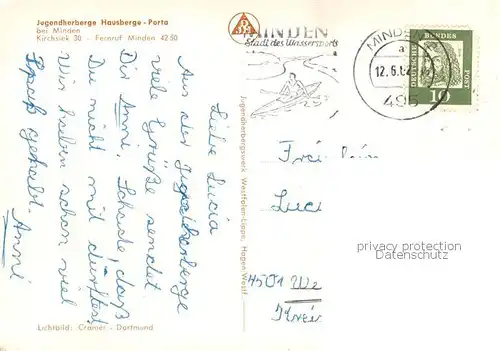 Jugendherberge Hausberge - Porta
bei Minden
Kirchsiek 30 - Fernruf Minden 42 50
MINDEN
Stadt des Wassersports
MINDEN
a
12.6.6
495
DEUTSCHE BUNDESPOST
10
Liebe Lucia
Aus der Jugendherberge
viele Grüße sendet
Dir Anni. Schade, daß
Du nicht mit durftest
Wir haben schon viel
Spaß gehabt.
Anni
Jugendherbergswerk Westfalen-Lippe, Hagen/Westf.
Luci
privacy protection
www.ansichtskartenversand.com
4501 We
Krei
Lichtbild: Cramer - Dortmund